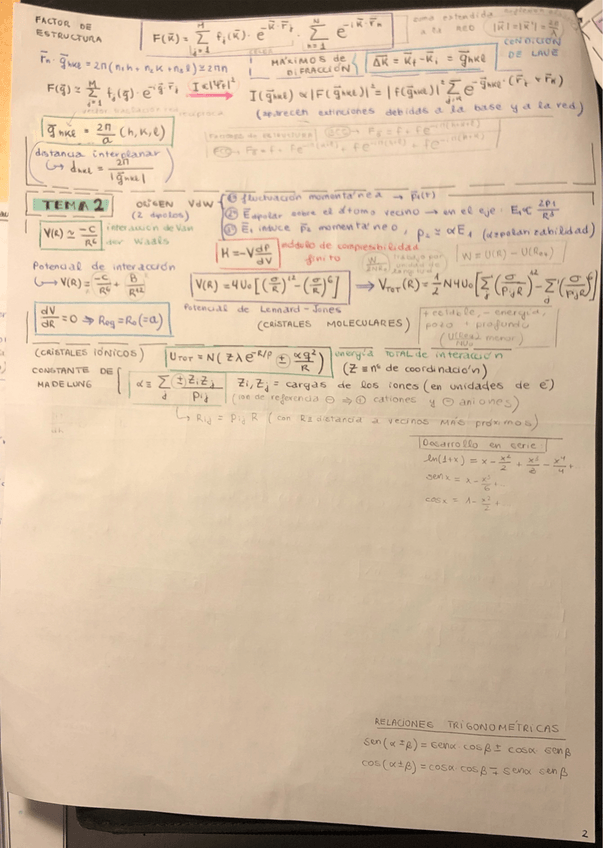 FACTOR DE ESTRUCTURA
F(K⃗) = Σ_{j=1}^{M} f_j(K⃗) · e^{-iK⃗·r⃗_j} · Σ_{n=1}^{N} e^{-iK⃗·r⃗_n}
|K⃗| = |K⃗'| = 2π/λ
r⃗_n · g⃗_hkl = 2π(n₁h + n₂k + n₃l) = 2πn
MÁXIMOS de DIFRACCIÓN
Δ⃗K = K⃗_f - K⃗_i = g⃗_hkl
CONDICIÓN DE LAUE
F(g⃗) ≃ Σ_{j=1}^{M} f_j(g⃗) · e^{-ig⃗·r⃗_j}
I ∝ |Ψ_f|²
I(g⃗_hkl) ∝ |F(g⃗_hkl)|² = |f(g⃗_hkl)|²
(aparecen extinciones debidas a la base y a la red)
g⃗_hkl = 2π/a (h, k, l)
distancia interplanar
↳ d_hkl = 2π/|g⃗_hkl|
TEMA 2
ORIGEN VdW (2 dipolos)
① fluctuación momentánea → p⃗₁(t)
② E⃗ dipolar sobre el átomo vecino → en el eje: E₁ ∝ 2p₁/R³
③ E⃗₁ induce p⃗₂ momentáneo, p₂ = αE₁ (α≡polarizabilidad)
V(R) ≃ -C/R⁶ interacción de Van der Waals
H = -V dP/dV módulo de compresibilidad
finito
W = U(R) - U(R_eq)
Potencial de interacción
↳ V(R) = -C/R⁶ + B/R¹²
V(R) = 4U₀[(σ/R)¹² - (σ/R)⁶] ⟹ V_TOT(R) = 1/2 N4U₀[Σ_j (σ/P_ij R)¹² - Σ_j (σ/P_ij R)⁶]
Potencial de Lennard-Jones
dV/dR = 0 ⇒ R_eq = R₀ (=a)
(CRISTALES MOLECULARES)
+ estable, - energía,
pozo + profundo
(CRISTALES IÓNICOS)
U_TOT = N(zλe^{-R/ρ} ± αq²/R) energía TOTAL de interacción
(Z ≡ nº de coordinación)
CONSTANTE DE MADELUNG
α ≡ Σ_j (±)Z_i Z_j / P_ij
Z_i, Z_j = cargas de los iones (en unidades de e⁻)
(ion de referencia ⊖ ⇒ ⊕ cationes y ⊖ aniones)
↳ R_ij = P_ij R (con R≡distancia a vecinos más próximos)
Desarrollo en serie:
ln(1+x) = x - x²/2 + x³/3 - x⁴/4 + ...
sen x = x - x³/6 + ...
cos x = 1 - x²/2 + ...
RELACIONES TRIGONOMÉTRICAS
sen(α±β) = senα cosβ ± cosα senβ
cos(α±β) = cosα cosβ ∓ senα senβ
2